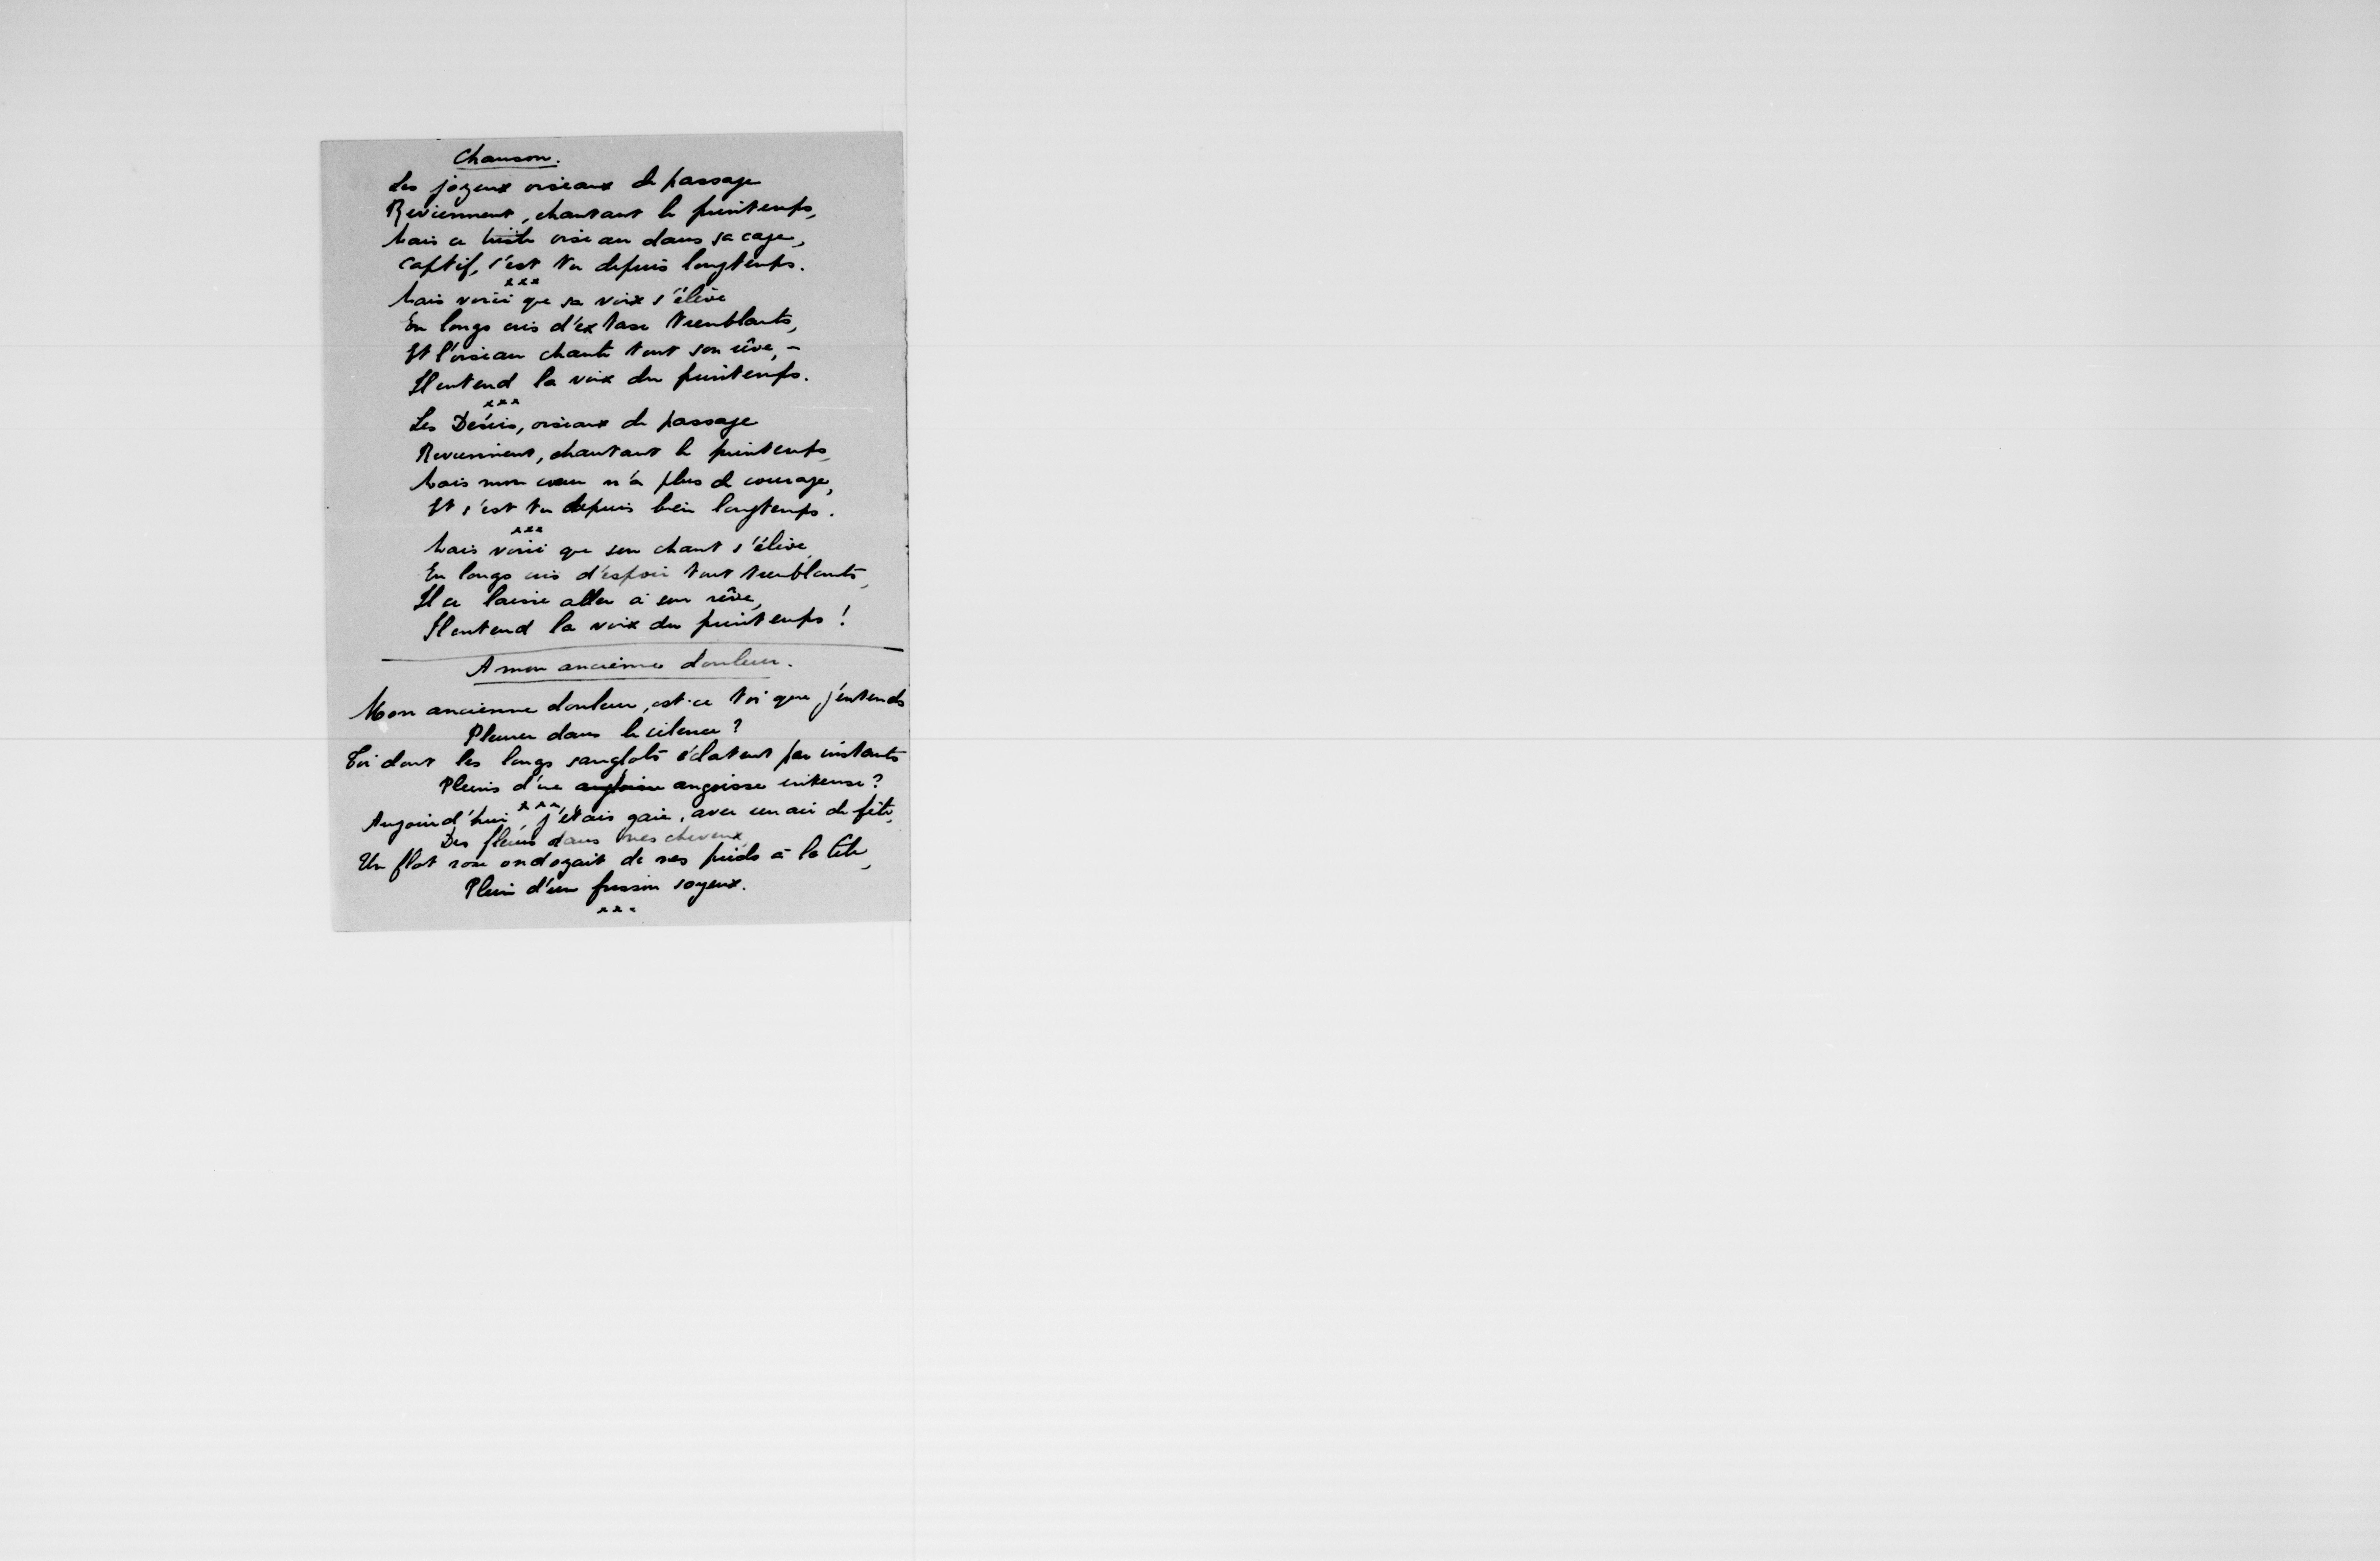 Chanson.
Les joyeux oiseaux de passage
Reviennent, chantant le printemps,
Mais ce triste oiseau dans sa cage,
Captif, s'est tu depuis longtemps.
xxx
Mais voici que sa voix s'élève
En longs cris d'extase tremblants,
Et l'oiseau chante tout son rêve, –
Il entend la voix du printemps.
xxx
Les Désirs, oiseaux de passage
Reviennent, chantant le printemps,
Mais mon cœur n'a plus de courage,
Et s'est tu depuis bien longtemps.
xxx
Mais voici que son chant s'élève,
En longs cris d'espoir tout tremblants,
Il se laisse aller à son rêve,
Il entend la voix du printemps !
A mon ancienne douleur.
Mon ancienne douleur, est-ce toi que j'entends
Pleurer dans le silence ?
Toi dont les longs sanglots éclatent par instants
Pleins d'une angoisse intense ?
xxx
Aujourd'hui, j'étais gaie, avec un air de fête,
Des fleurs dans mes cheveux,
Un flot rose ondoyait de mes pieds à la tête,
Plein d'un frisson soyeux.
xxx